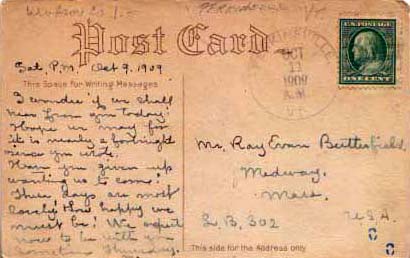 Post Card
Sat. P.M. Oct 9. 1909
This Space for Writing Messages
I wonder if we shall
hear from you today?
Hope we may for
it is nearly a fortnight
since you wrote.
Have you given up
wanting us to come?
These days are most
lovely! How happy we
must be! We expect
now to be with you
sometime Thursday.
OCT
1909
A.M.
VT.
U.S. POSTAGE
ONE CENT
Mr. Ray Evan Butterfield
Medway.
Mass.
L.B. 302
U.S.A.
This side for the Address only